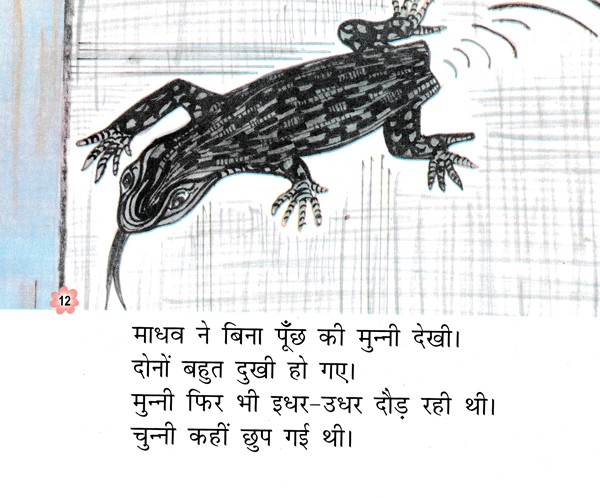 12
माधव ने बिना पूँछ की मुन्नी देखी।
दोनों बहुत दुखी हो गए।
मुन्नी फिर भी इधर-उधर दौड़ रही थी।
चुन्नी कहीं छुप गई थी।